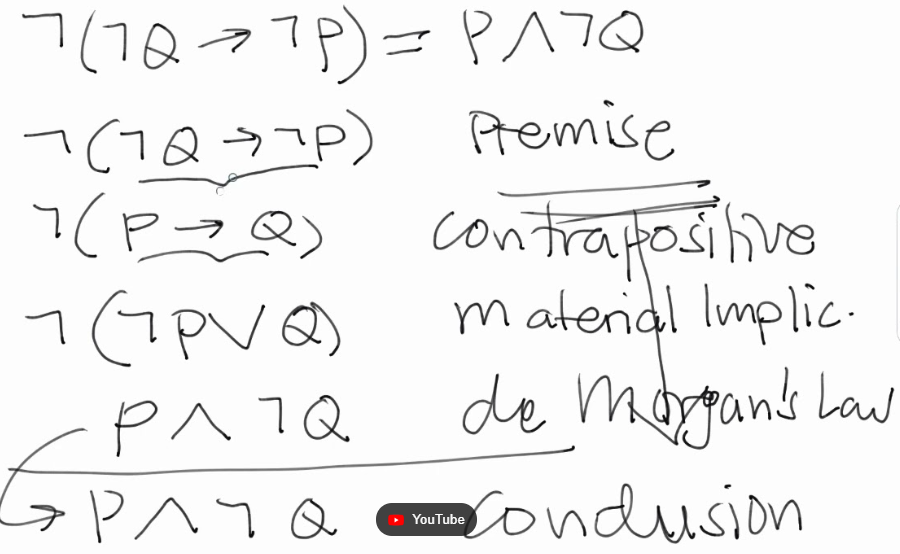 ¬(¬Q → ¬P) = P ∧ ¬Q
¬(¬Q → ¬P) Premise
¬(P → Q) contrapositive
¬(¬P ∨ Q) material Implic.
P ∧ ¬Q de Morgan's Law
→ P ∧ ¬Q Conclusion
YouTube